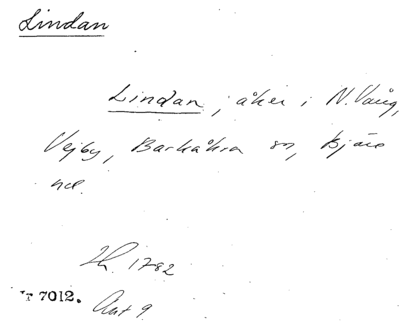 Lindan
Lindan, åker i N. Vång,
Vejby, Barkåkra sn, Bjäre
hd.
Lh. 1782
Akt 9
7012.